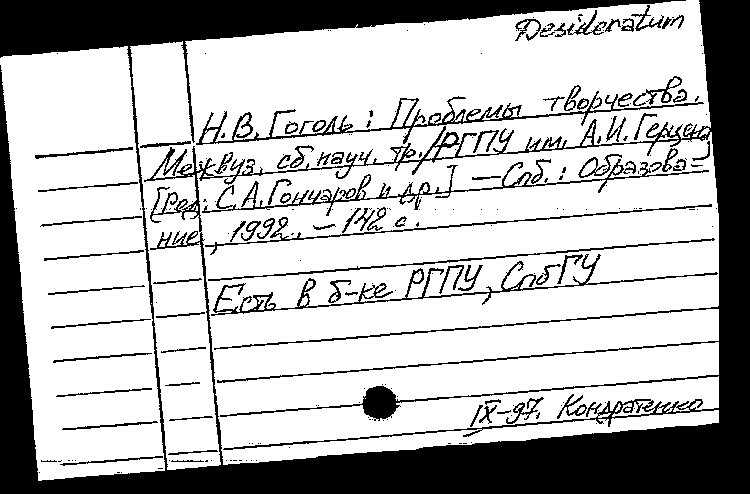 Desideratum
Н.В. Гоголь: Проблемы творчества.
Межвуз. сб. науч. тр./РГПУ им. А.И. Герцена
[Ред.: С.А. Гончаров и др.] — Спб.: Образова=
ние, 1992. — 142 с.
Есть в б-ке РГПУ, СпбГУ
IX-97. Кондратенко